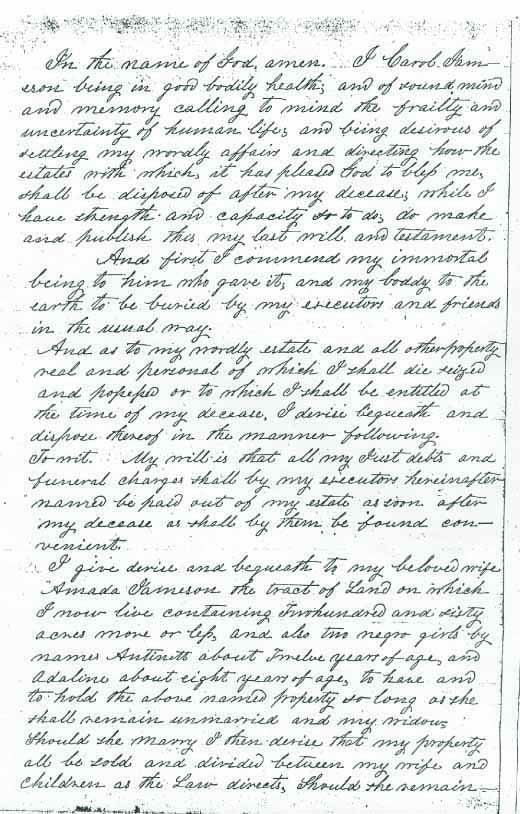 In the name of God, amen. I Carol Jam-
eson being in good bodily health; and of sound mind
and memory calling to mind the frailty and
uncertainty of human life; and being desirous of
settling my wordly affairs and directing how the
estates with which, it has pleased God to bless me,
shall be disposed of after my decease; while I
have strength and capacity so to do; do make
and publish this my last will and testament.
And first I commend my immortal
being to him who gave it; and my boddy to the
earth to be buried by my executors and friends
in the usual way.
And as to my wordly estate and all other property
real and personal of which I shall die seized
and possessed or to which I shall be entitled at
the time of my decease, I devise bequeath and
dispose thereof in the manner following.
To wit. My will is that all my Just debts and
funeral charges shall by my executors hereinafter
named be paid out of my estate as soon after
my decease as shall by them be found con-
venient.
I give devise and bequeath to my beloved wife
Amada Jameson the tract of Land on which
I now live containing Two hundred and sixty
acres more or less, and also two negro girls by
names Antinett about Twelve years of age, and
Adaline about eight years of age, to have and
to hold the above named property so long as she
shall remain unmarried and my widow;
Should she marry I then devise that my property
all be sold and divided between my wife and
children as the Law directs, Should she remain-